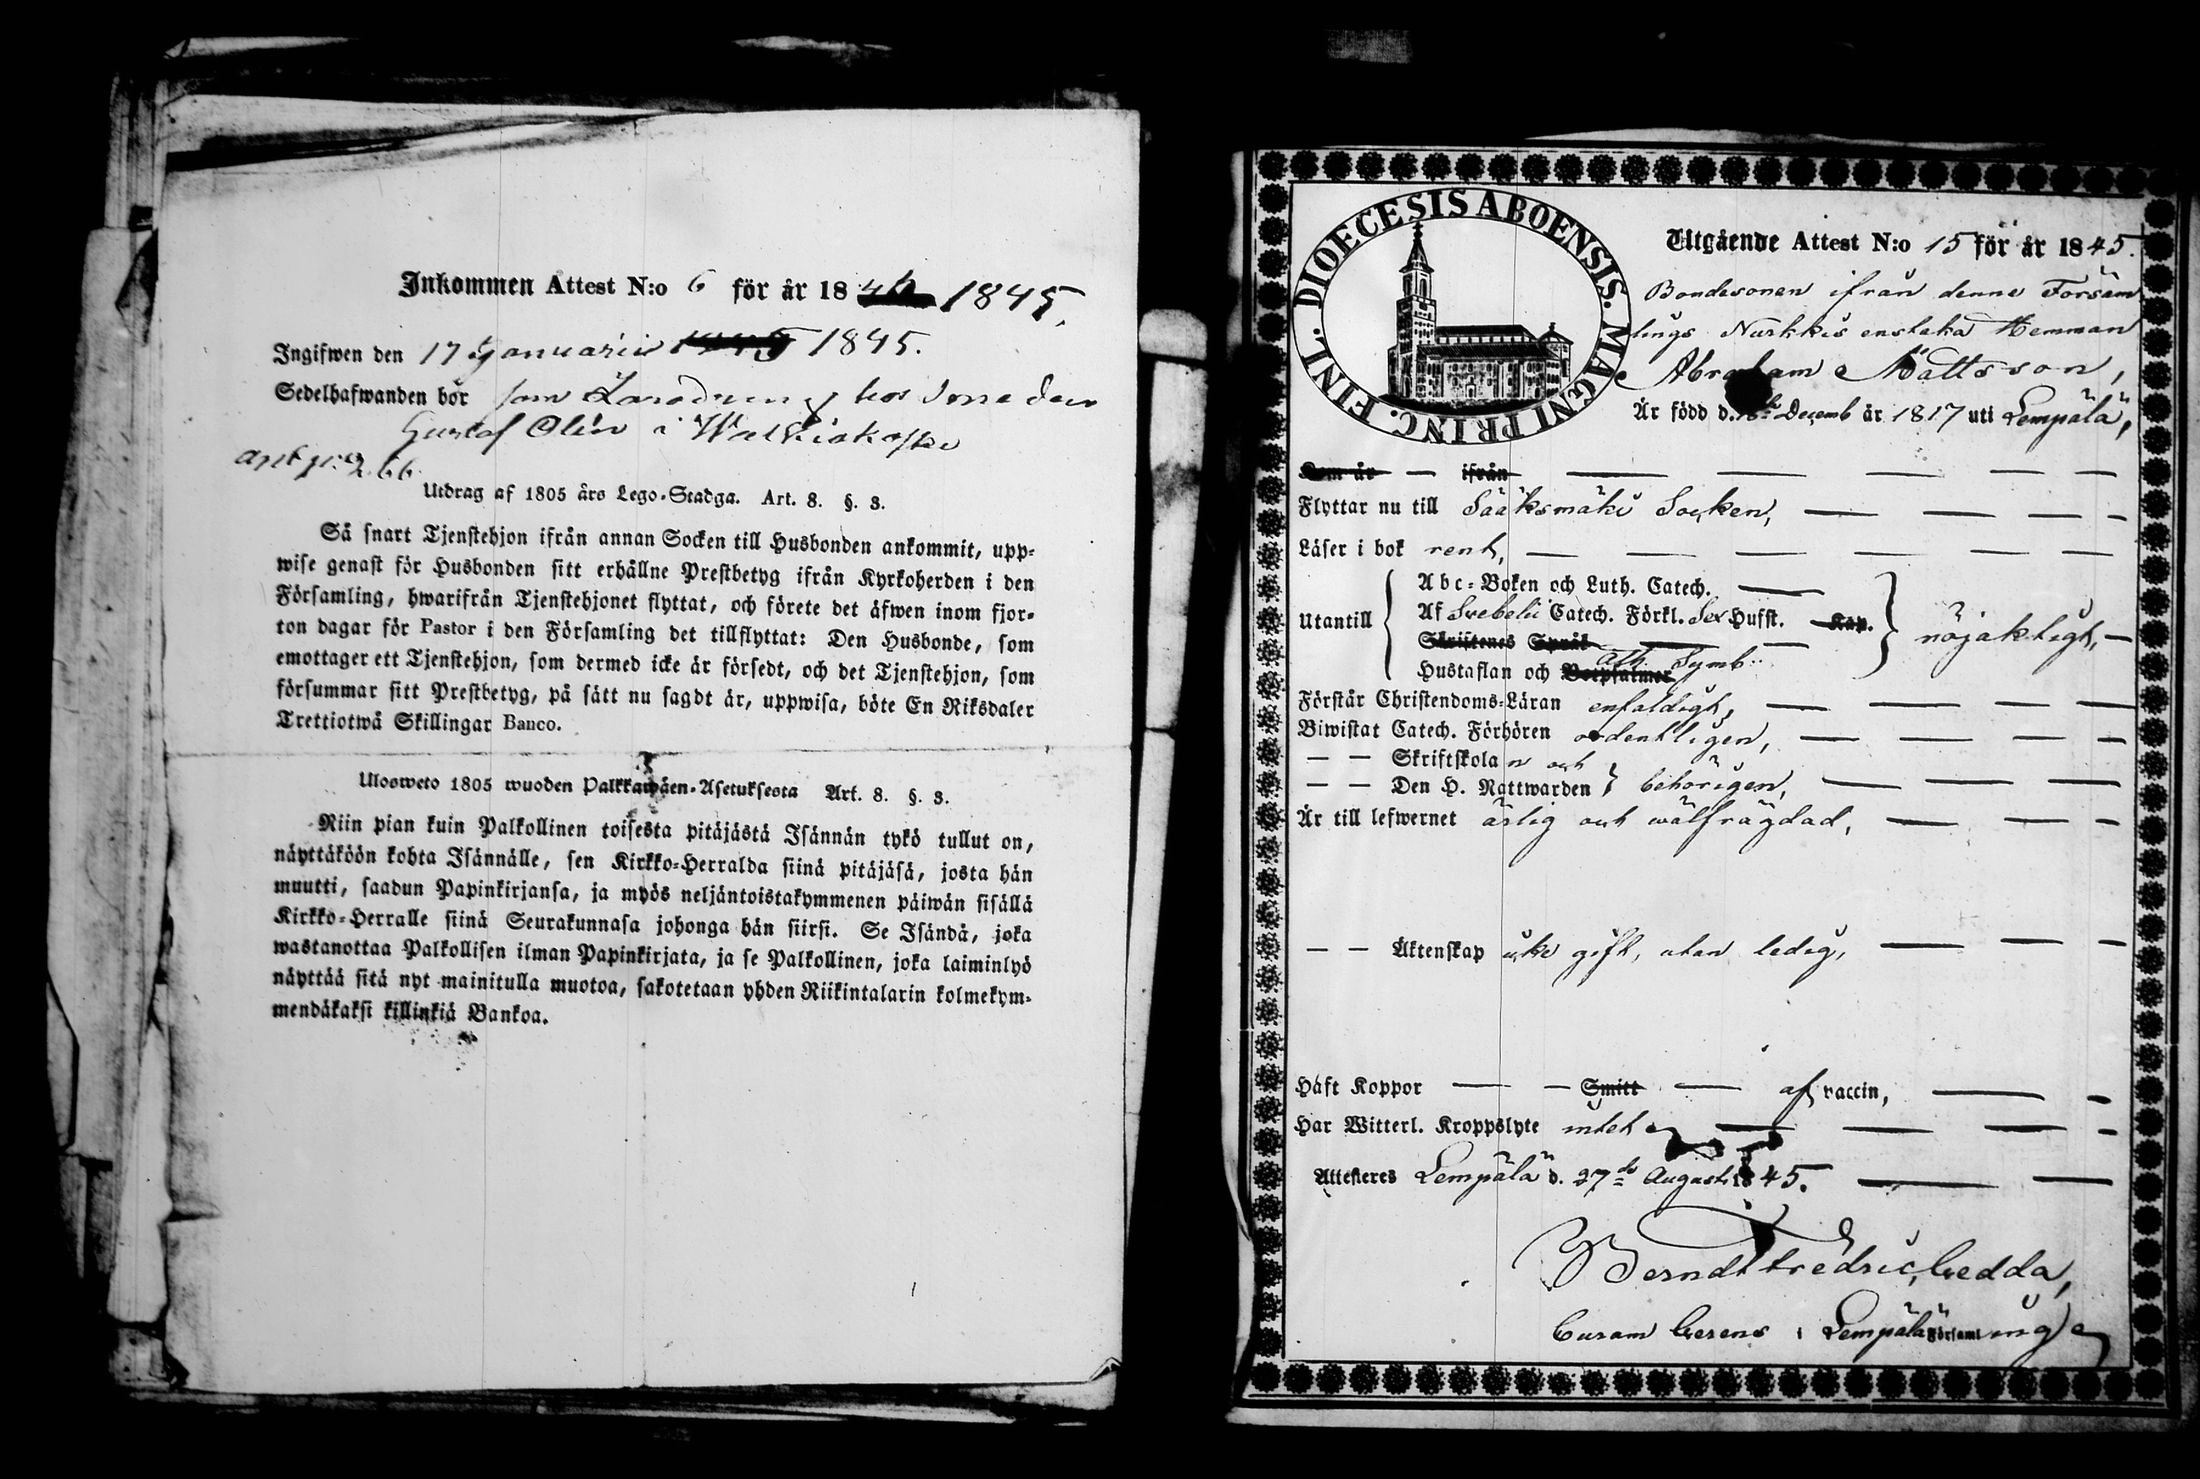 Inkommen Attest N:o 6 för år 18 1845.
Ingifwen den 17 Januarii 1845.
Sedelhafwanden bör som hos
Gustaf Olin i Walkiakoski
Utdrag af 1805 års Lego-Stadga. Art. 8. §. 3.
Så snart Tjenstehjon ifrån annan Socken till Husbonden ankommit, upp-
wise genast för Husbonden sitt erhållne Prestbetyg ifrån Kyrkoherden i den
Församling, hwarifrån Tjenstehjonet flyttat, och förete det äfwen inom fjor-
ton dagar för Pastor i den Församling det tillflyttat: Den Husbonde, som
emottager ett Tjenstehjon, som dermed icke är försedt, och det Tjenstehjon, som
försummar sitt Prestbetyg, på sätt nu sagdt är, uppwisa, böte En Riksdaler
Trettiotwå Skillingar Banco.
Ulosweto 1805 wuoden Palkkawäen-Asetuksesta Art. 8. §. 3.
Niin pian kuin Palkollinen toisesta pitäjästä Isännän tykö tullut on,
näyttäköön kohta Isännälle, sen Kirkko-Herralda siinä pitäjäsä, josta hän
muutti, saadun Papinkirjansa, ja myös neljäntoistakymmenen päiwän sisällä
Kirkko-Herralle siinä Seurakunnasa johonga hän siirsi. Se Isändä, joka
wastanottaa Palkollisen ilman Papinkirjata, ja se Palkollinen, joka laiminlyö
näyttää sitä nyt mainitulla muotoa, sakotetaan yhden Riikintalarin kolmekym-
mendäkaksi killinkiä Bankoa.
DIOECESIS ABOENSIS. MAGNI PRINC. FINL.
Utgående Attest N:o 15 för år 1845.
Bondesonen ifrån denna Försam
lings Nurkkis enstaka Hemman
Abraham Mattsson,
Är född d. 18de Decemb år 1817 uti Lempälä,
Som är ifrån
Flyttar nu till Sääksmäki Socken,
Läser i bok rent,
Utantill
Abc-Boken och Luth. Catech.
Af Svebelii Catech. Förkl. Sex Hufst. Kap.
Skriftenes Språk
Ath. Symb:
Hustaflan och Botpsalmer
nöjaktigt,
Förstår Christendoms-Läran enfaldigt,
Biwistat Catech. Förhören ordentligen,
— — Skriftskolan och
— — Den H. Nattwarden behörigen,
Är till lefwernet ärlig och wälfrägdad,
— — Äktenskap icke gift, utan ledig,
Haft Koppor — — Smitt — af vaccin,
Har Witterl. Kroppslyte intet
Attesteres Lempälä d. 27de Augusti 1845.
Berndt Fredric Gedda,
Curam Gerens i Lempälä Församling